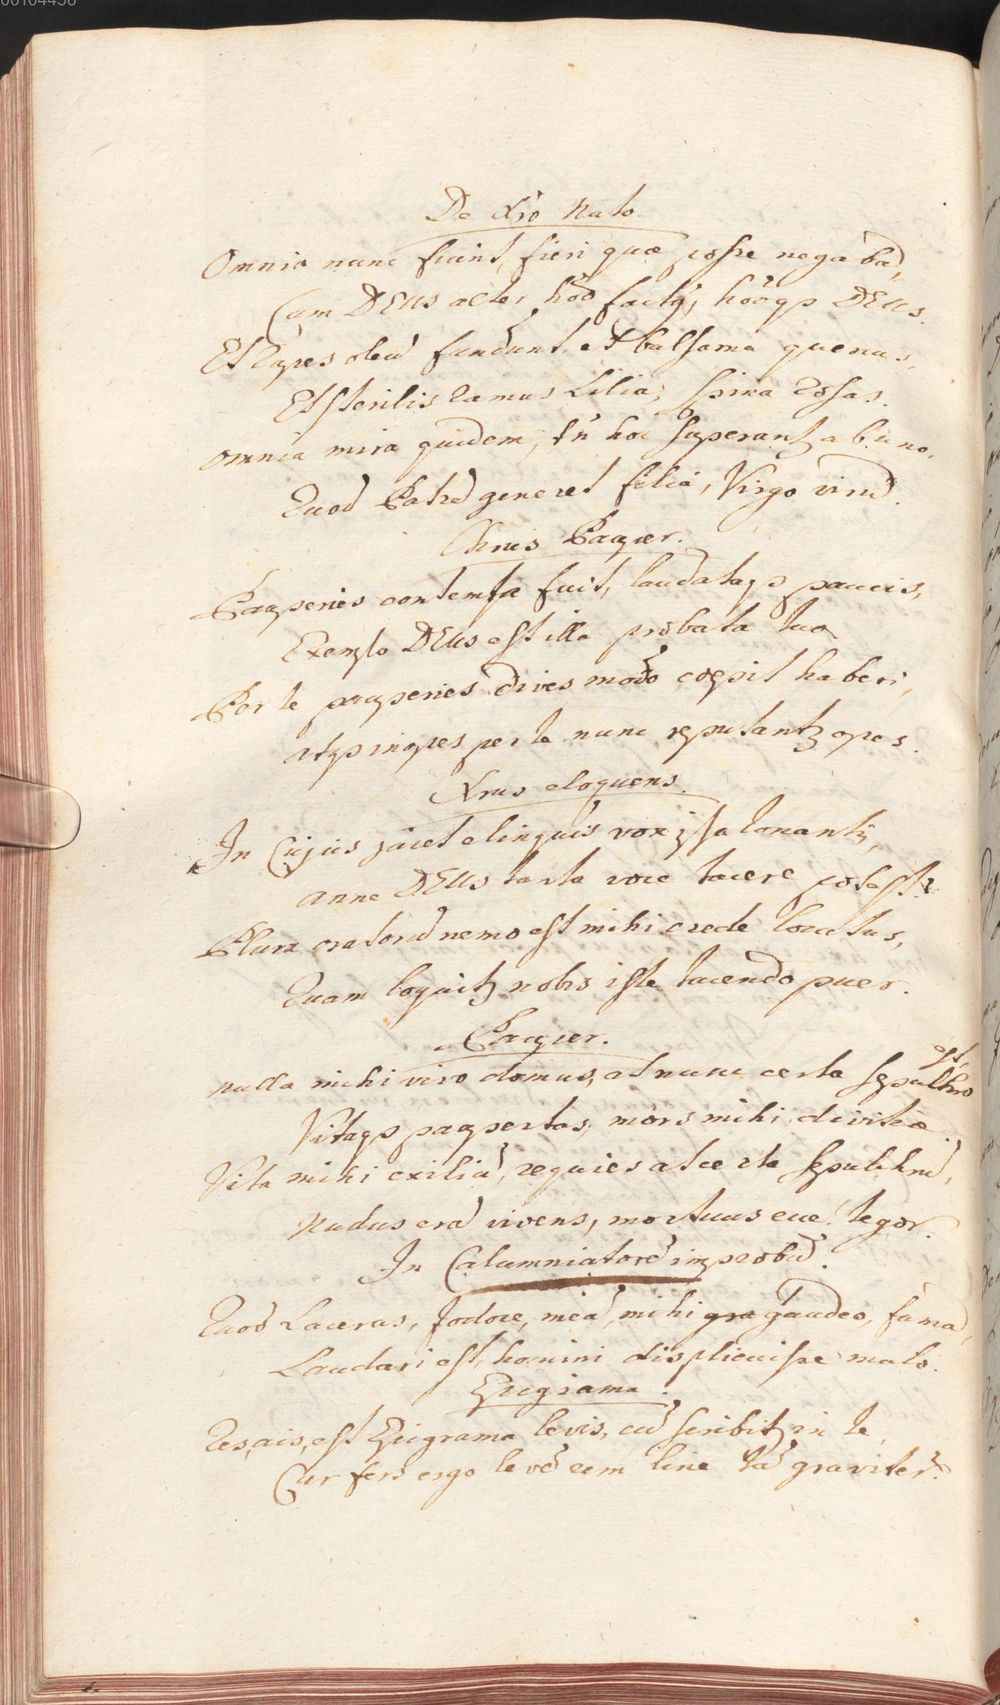 00104436
De Xr̃o Nato.
Omnia nunc fiunt, fieri quæ posse negabã,
Cum DEUs alter hõo factꝰ, hõoqꝫ DEUs.
Et rupes oleũ fundunt, et balsama quercus,
Et sterilis ramus Lilia; spina rosas.
Omnia mira quidem; tñ hoc superantꝫ ab uno,
Quod Patrẽ generet filia, Virgo virũ.
Chrus Pauper.
Pauperies contempta fuit, laudataqꝫ paucis,
Exemplo DEUs est illa probata tuo
Per te pauperies dives modo coepit haberi,
atqꝫ inopes per te nunc reputantꝫ opes.
Xrus eloquens.
In Cujus jacet elinguis vox ipsa tonantis,
anne DEUs tanta voce tacere potest?
Plura oratorũ nemo est mihi crede locutus,
Quam loquitꝫ nobis iste tacendo puer.
Pauper.
nulla mihi vivo domus, at nunc certa sepulchro est,
Vitaqꝫ paupertas, mors mihi divitiæ.
Vita mihi exiliũ, requies at certa sepulchrũ,
Nudus erã vivens, mortuus ecce! tegor.
In Calumniatorẽ improbũ.
Quod Laceras, Jodoce, meã, mihi gra gaudeo, famã,
Laudari est, homini displicuisse malo.
Epigrama.
Res, ais, est Epigrama levis, cũ scribitꝫ in te,
Cur fers ergo levẽ rem line tã graviter?